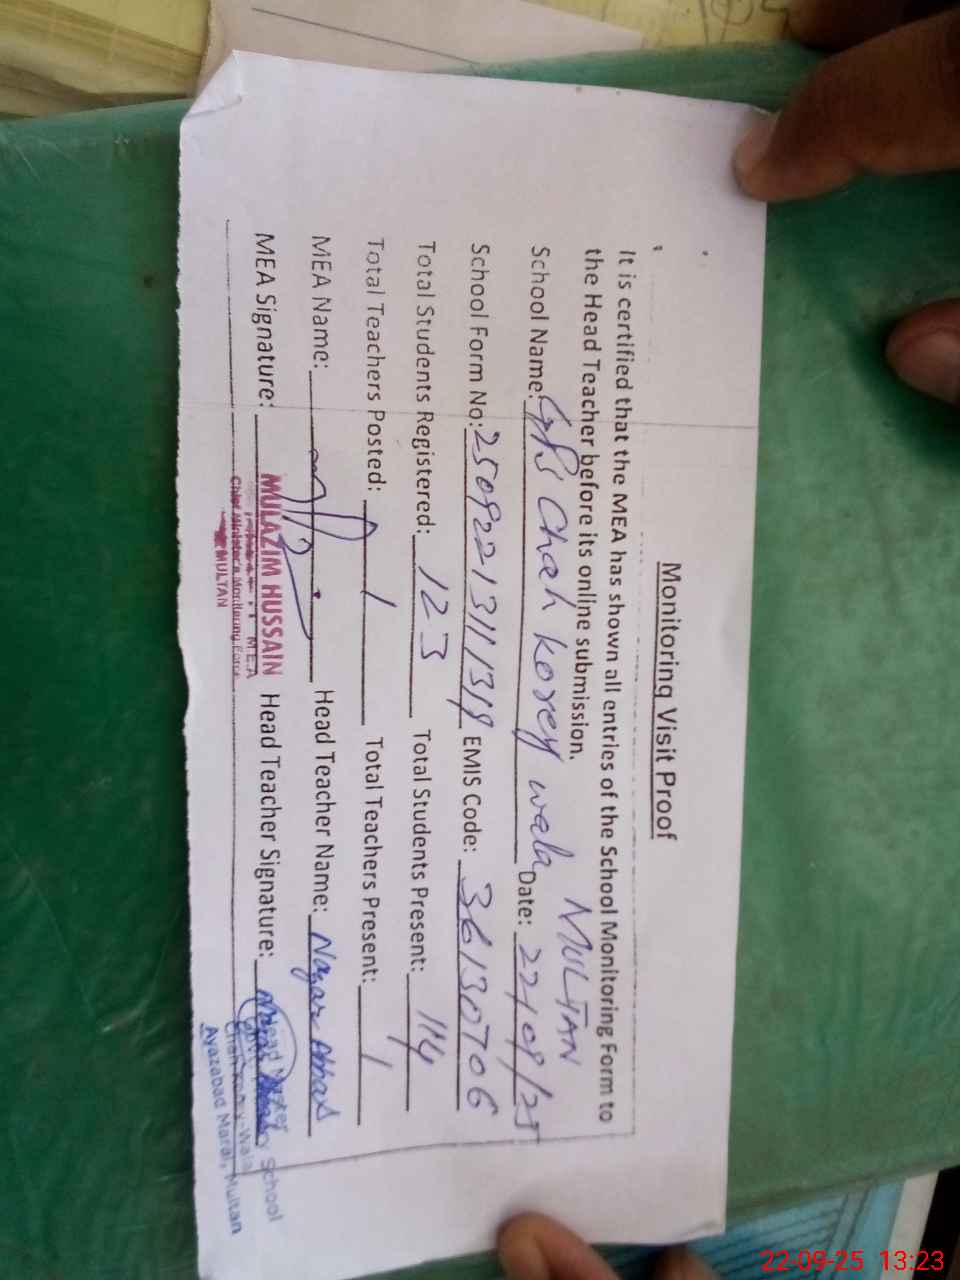 Monitoring Visit Proof
It is certified that the MEA has shown all entries of the School Monitoring Form to
the Head Teacher before its online submission.
MULTAN
School Name: GPS Chah korey wala Date: 22/09/25
School Form No: EMIS Code: 36130706
Total Students Registered: 123 Total Students Present: 114
Total Teachers Posted: 1 Total Teachers Present: 1
MEA Name: Head Teacher Name: Abbas
MEA Signature: Head Teacher Signature:
MULAZIM HUSSAIN
M.E.A
Chief Minister's Monitoring Force
MULTAN
Head Master
School
Chah Korey-Wala
Ayazabad Maral, Multan
22-09-25 13:23